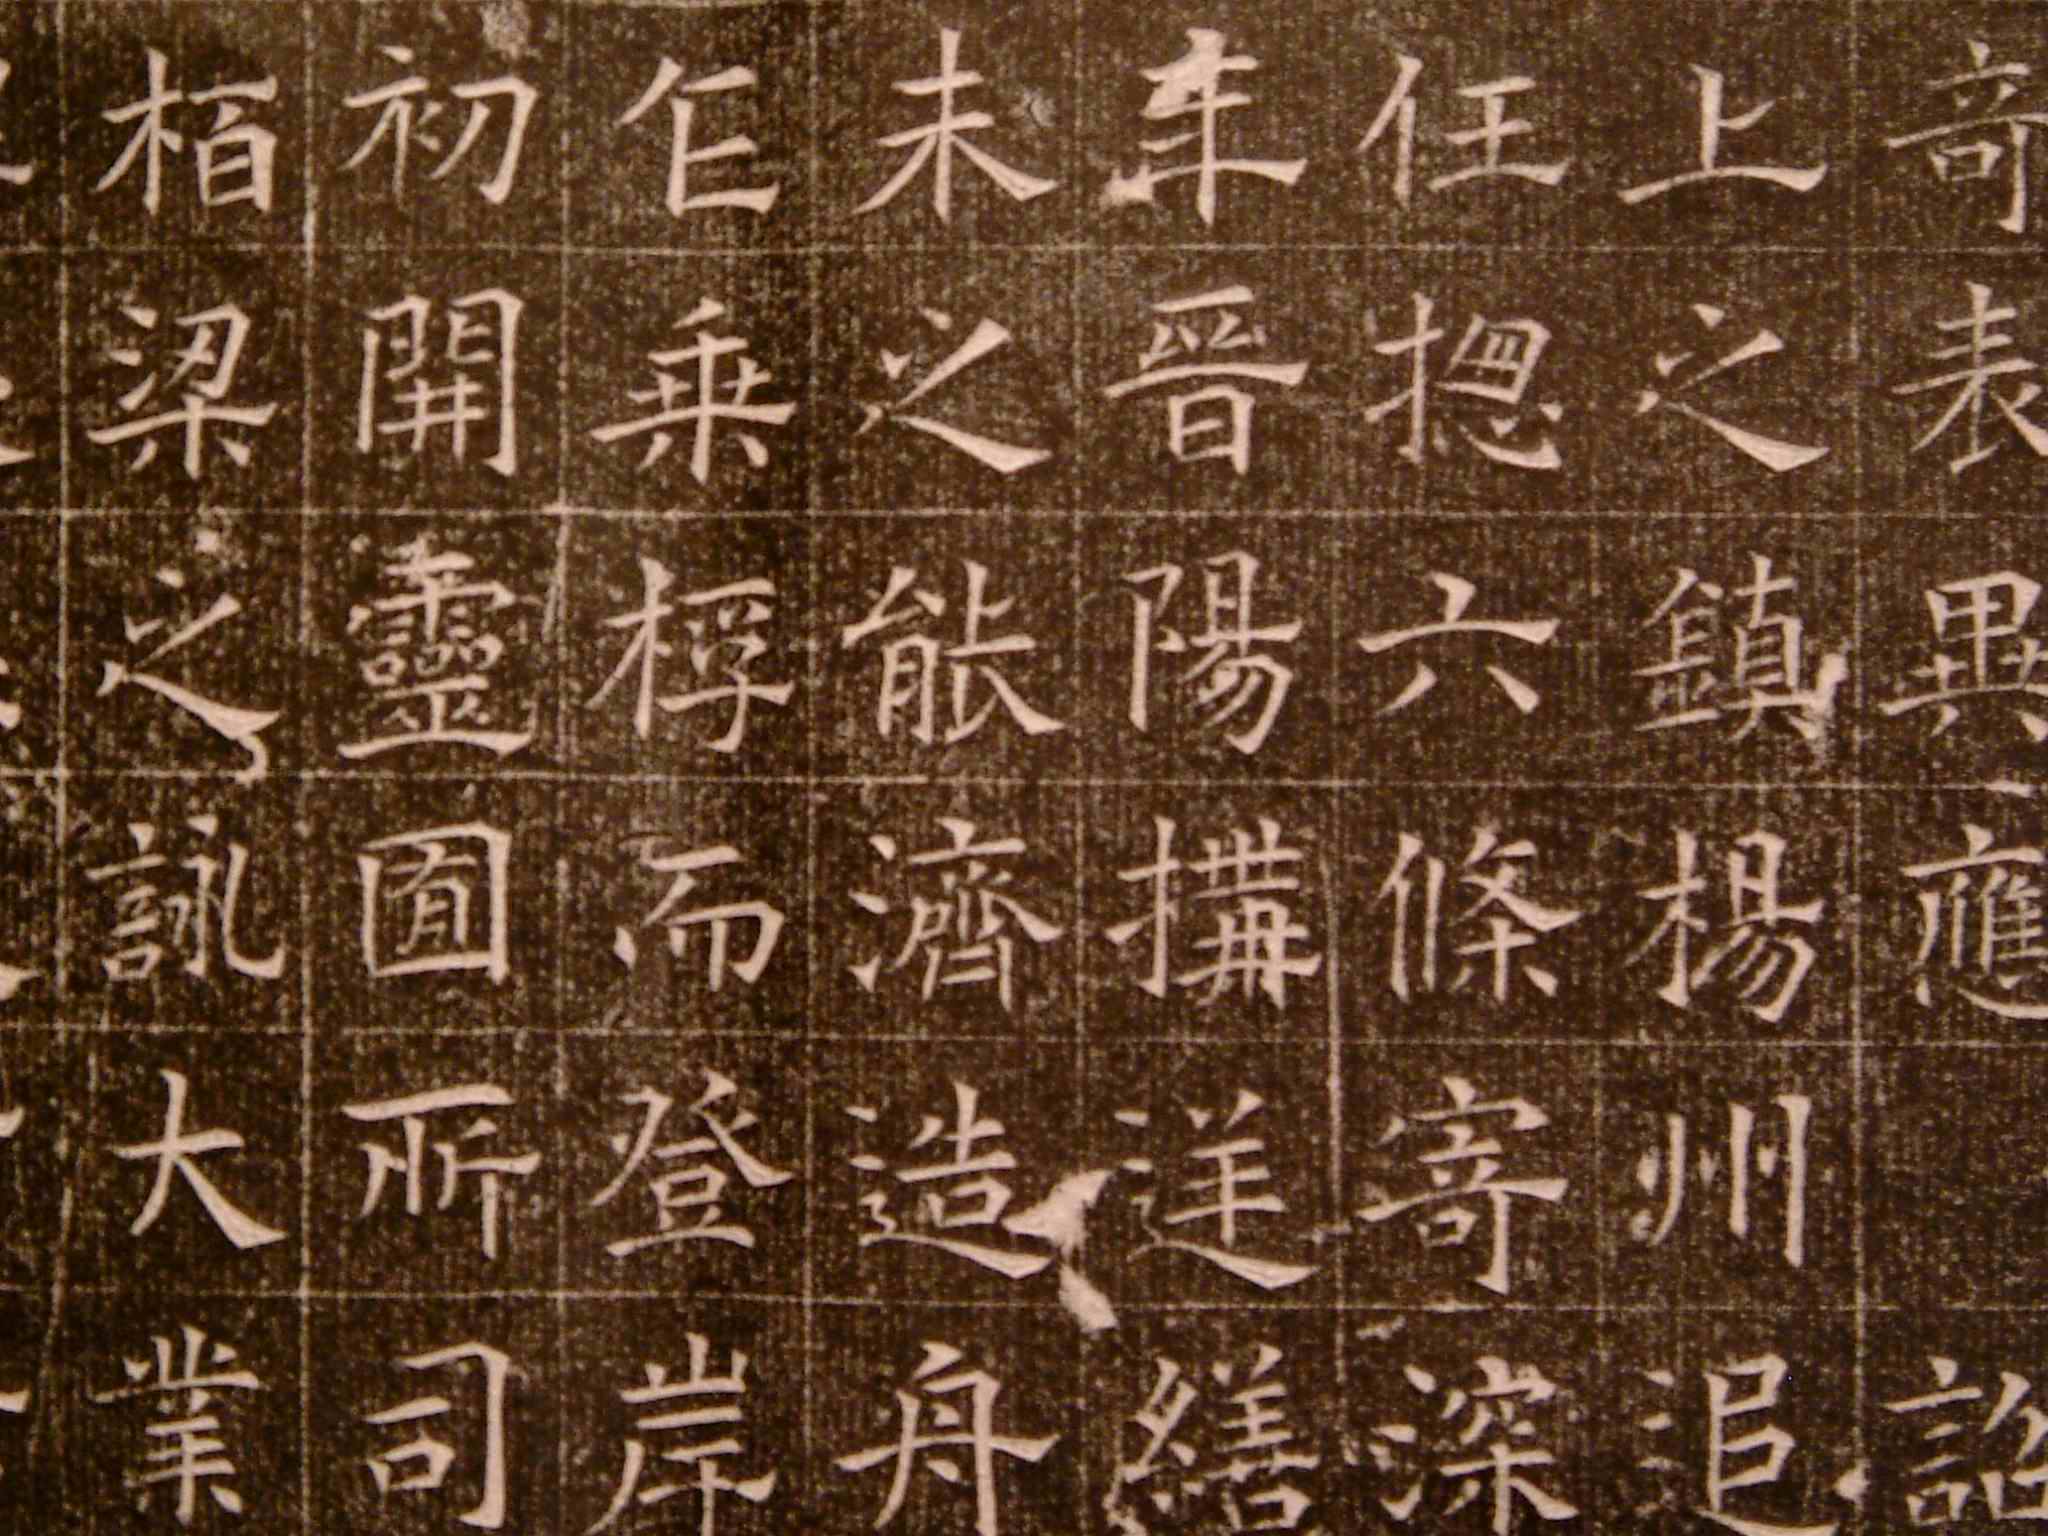 奇表異應詔
上之鎮楊州追
任揔六條寄深
年晉陽搆送繕
未之能濟造舟
乍乗桴而登岸
初開靈囿所司
栢梁之詠大業